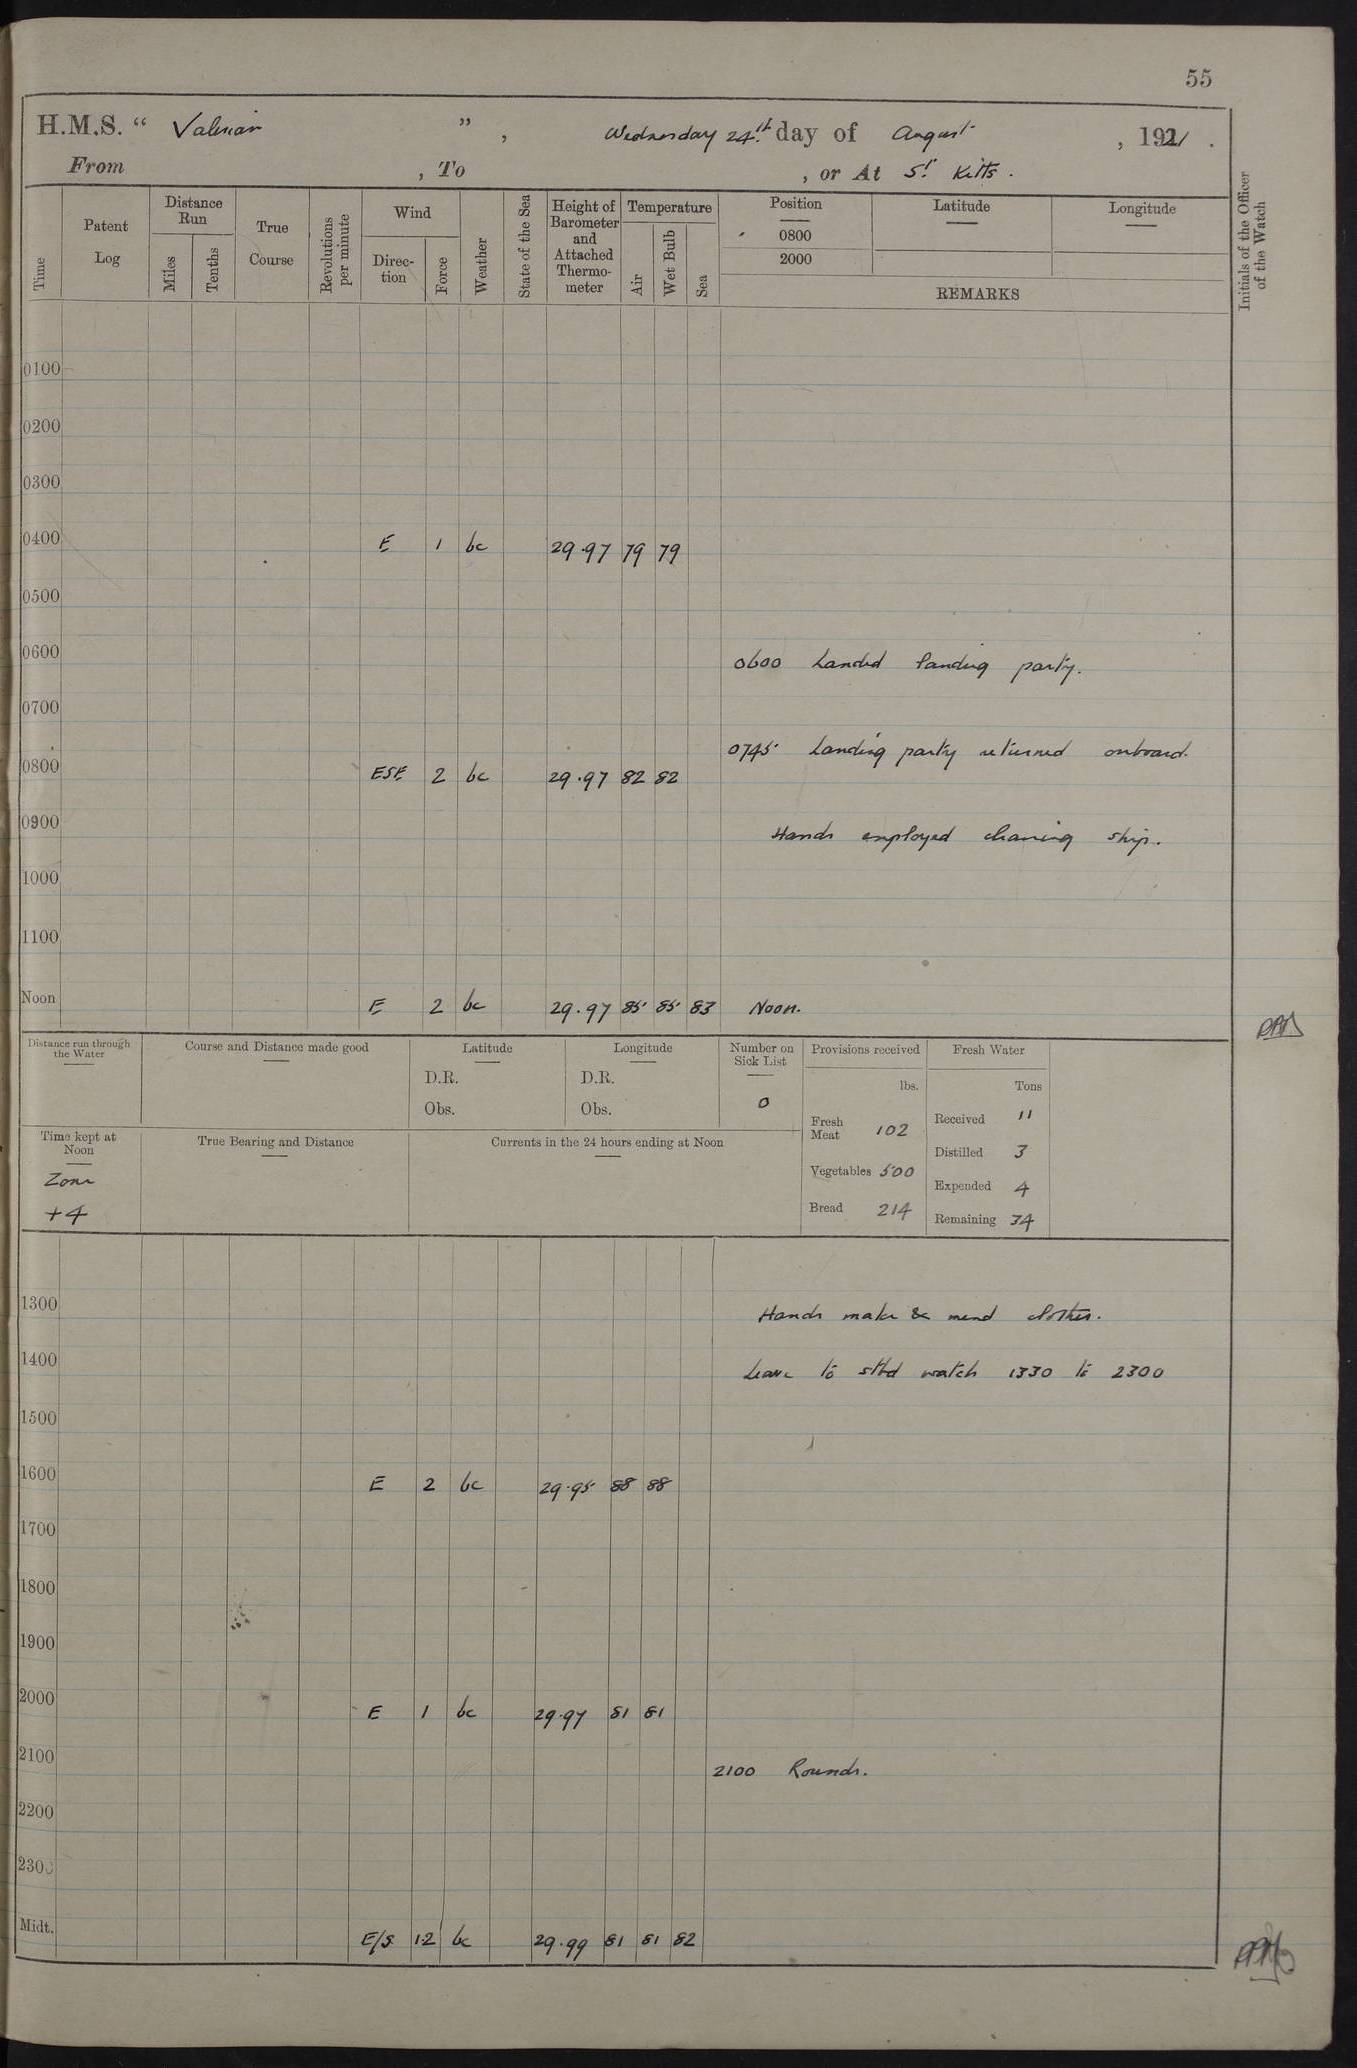 55
H.M.S. “ Valerian ” , Wednesday 24th. day of August , 1921 .
From , To , or At St. Kitts .
Time
Patent Log
Distance Run
Miles
Tenths
True Course
Revolutions per minute
Wind
Direc- tion
Force
Weather
State of the Sea
Height of Barometer and Attached Thermo- meter
Temperature
Air
Wet Bulb
Sea
Position
0800
2000
Latitude
Longitude
REMARKS
Initials of the Officer of the Watch
0100
0200
0300
0400 E 1 bc 29.97 79 79
0500
0600 0600 Landed landing party.
0700
0745 Landing party returned onboard.
0800 ESE 2 bc 29.97 82 82
0900 Hands employed cleaning ship.
1000
1100
Noon E 2 bc 29.97 85 85 83 Noon.
Distance run through the Water
Course and Distance made good
Latitude
D.R.
Obs.
Longitude
D.R.
Obs.
Number on Sick List
0
Provisions received
lbs.
Fresh Meat 102
Vegetables 500
Bread 214
Fresh Water
Tons
Received 11
Distilled 3
Expended 4
Remaining 34
Time kept at Noon
Zone
+4
True Bearing and Distance
Currents in the 24 hours ending at Noon
1300 Hands make & mend clothes.
1400 Leave to stbd watch 1330 to 2300
1500
1600 E 2 bc 29.95 88 88
1700
1800
1900
2000 E 1 bc 29.97 81 81
2100 2100 Rounds.
2200
2300
Midt. E/S 1.2 bc 29.99 81 81 82